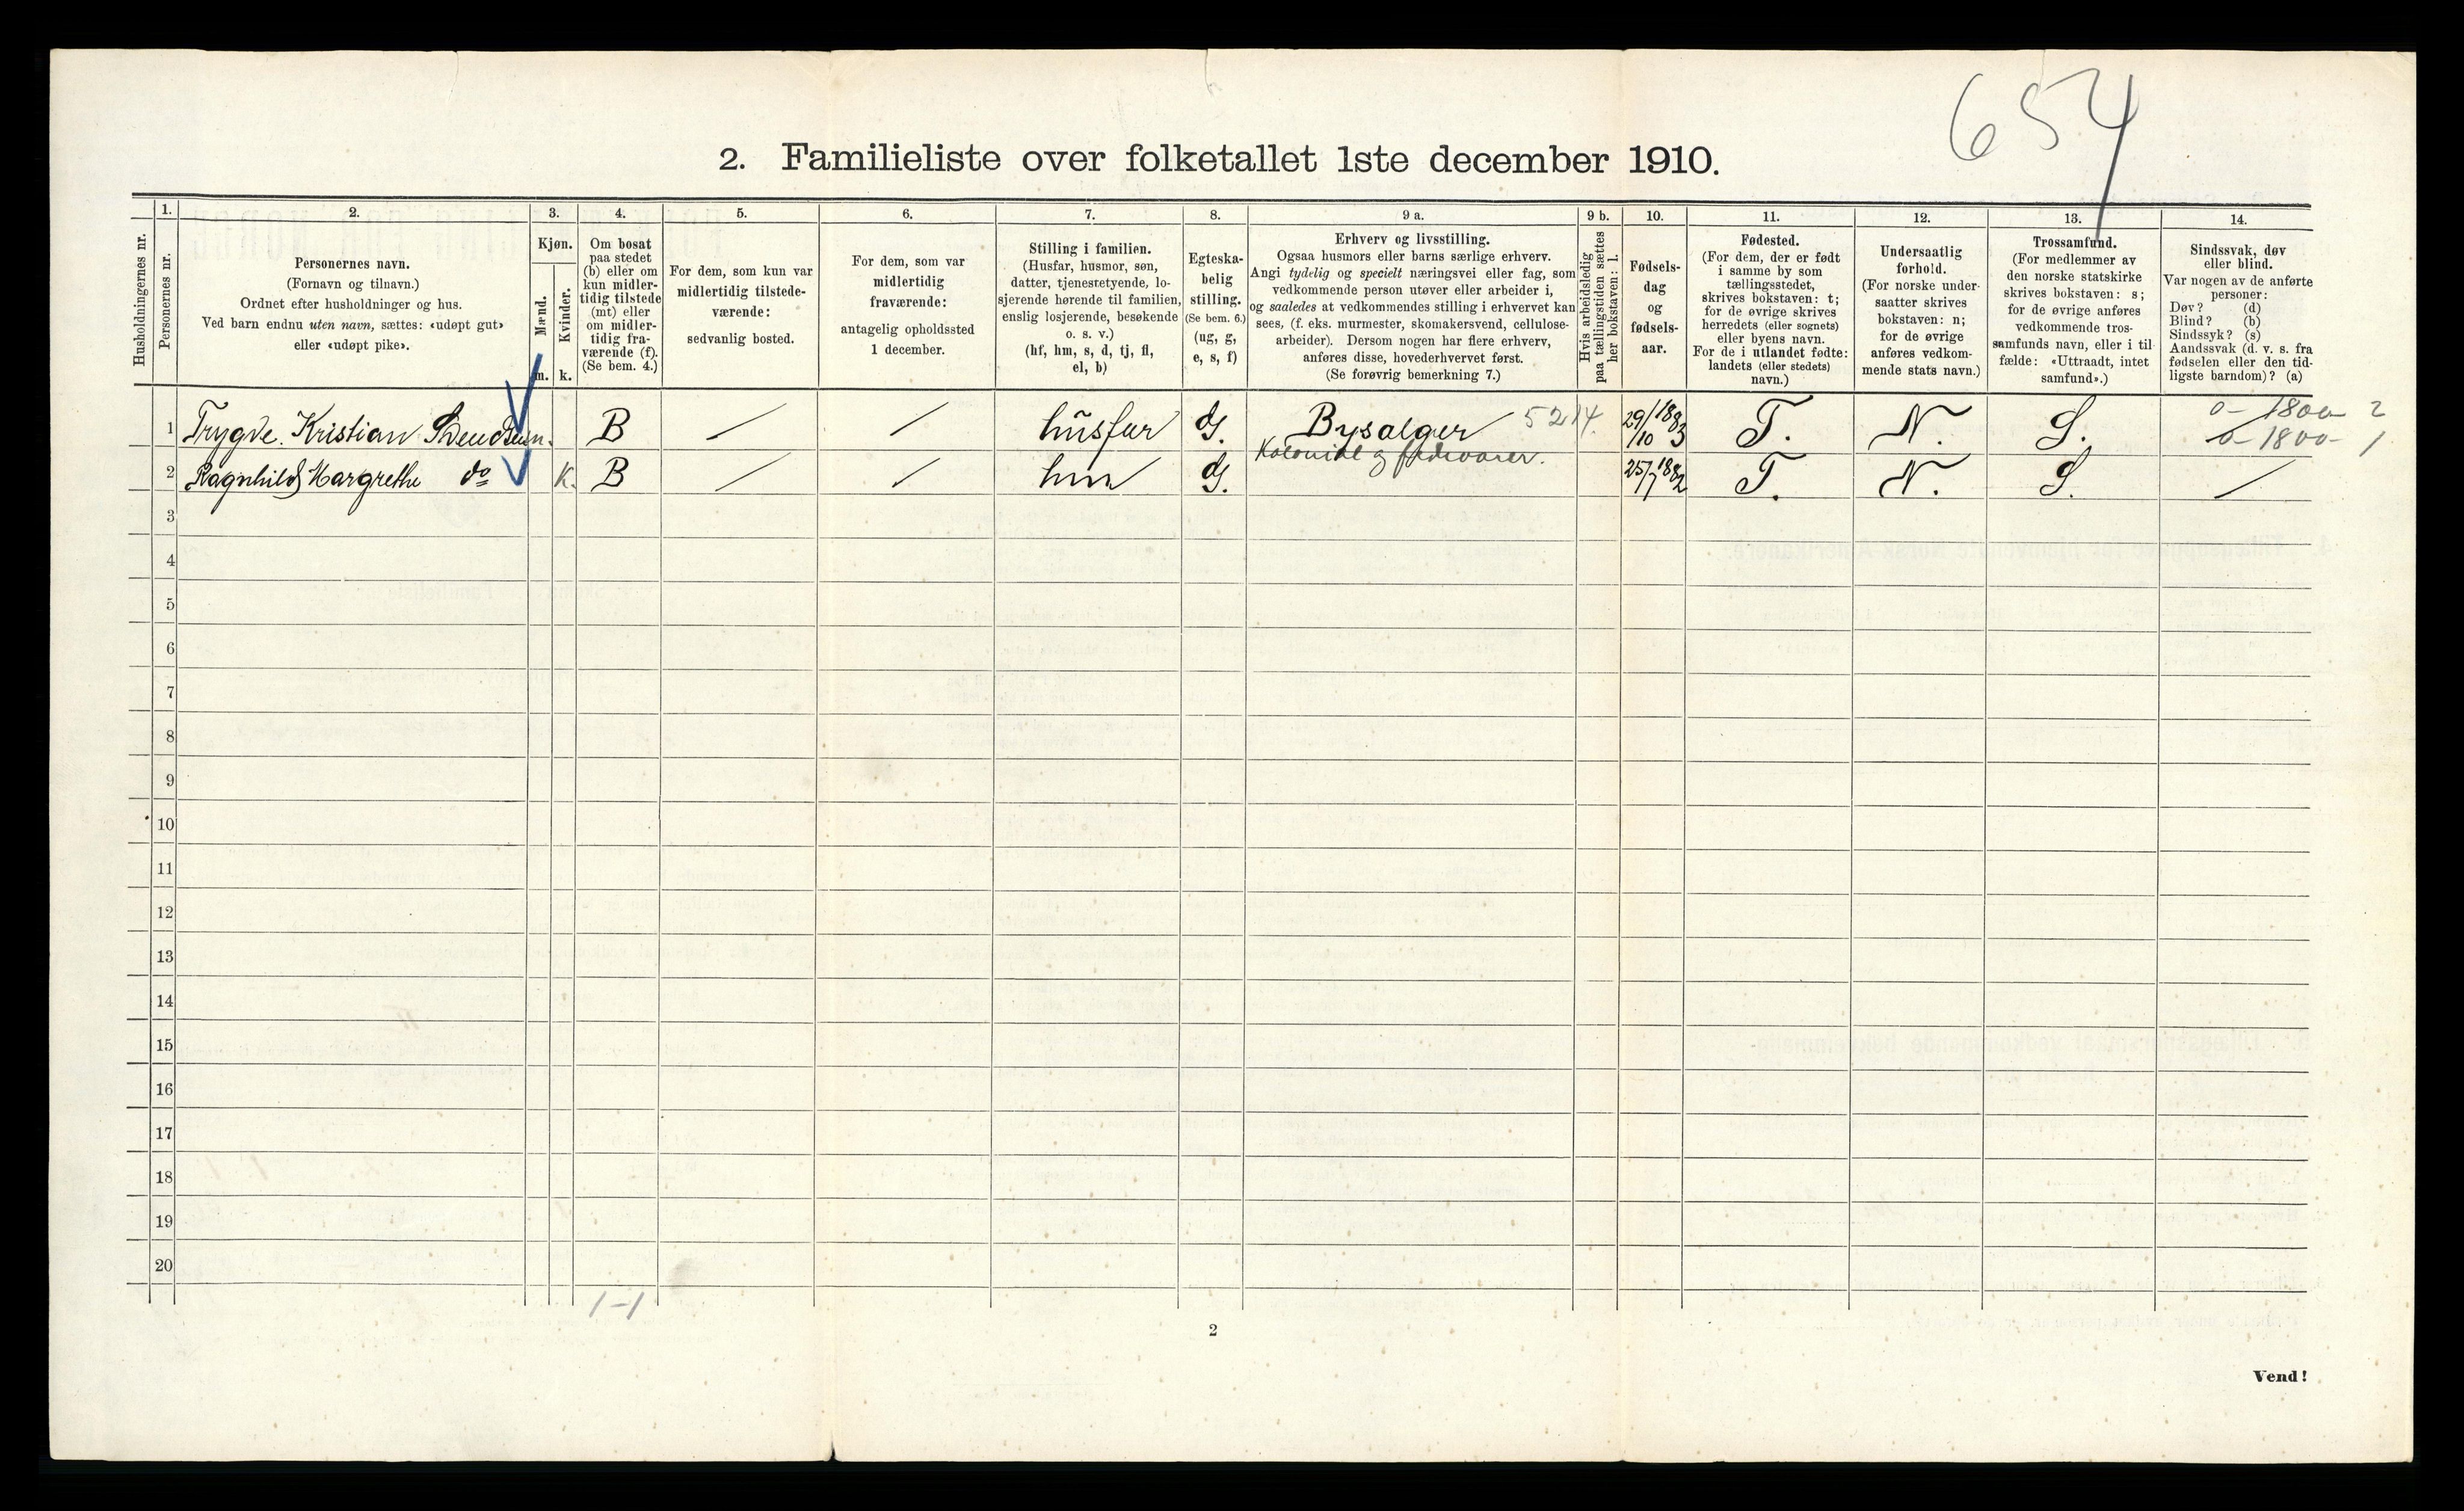 654
2. Familieliste over folketallet 1ste december 1910.
Husholdningernes nr.
1.
Personernes nr.
2.
Personernes navn.
(Fornavn og tilnavn.)
Ordnet efter husholdninger og hus.
Ved barn endnu uten navn, sættes: «udøpt gut»
eller «udøpt pike».
3.
Kjøn.
Mænd.
Kvinder.
m. k.
4.
Om bosat
paa stedet
(b) eller om
kun midler-
tidig tilstede
(mt) eller
om midler-
tidig fra-
værende (f).
(Se bem. 4.)
5.
For dem, som kun var
midlertidig tilstede-
værende:
sedvanlig bosted.
6.
For dem, som var
midlertidig
fraværende:
antagelig opholdssted
1 december.
7.
Stilling i familien.
(Husfar, husmor, søn,
datter, tjenestetyende, lo-
sjerende hørende til familien,
enslig losjerende, besøkende
o. s. v.)
(hf, hm, s, d, tj, fl,
el, b)
8.
Egteska-
belig
stilling.
(Se bem. 6.)
(ug, g,
e, s, f)
9 a.
Erhverv og livsstilling.
Ogsaa husmors eller barns særlige erhverv.
Angi tydelig og specielt næringsvei eller fag, som
vedkommende person utøver eller arbeider i,
og saaledes at vedkommendes stilling i erhvervet kan
sees, (f. eks. murmester, skomakersvend, cellulose-
arbeider). Dersom nogen har flere erhverv,
anføres disse, hovederhvervet først.
(Se forøvrig bemerkning 7.)
9 b.
Hvis arbeidsledig
paa tællingstiden sættes
her bokstaven: l.
10.
Fødsels-
dag
og
fødsels-
aar.
11.
Fødested.
(For dem, der er født
i samme by som
tællingsstedet,
skrives bokstaven: t;
for de øvrige skrives
herredets (eller sognets)
eller byens navn.
For de i utlandet fødte:
landets (eller stedets)
navn.)
12.
Undersaatlig
forhold.
(For norske under-
saatter skrives
bokstaven: n;
for de øvrige
anføres vedkom-
mende stats navn.)
13.
Trossamfund.
(For medlemmer av
den norske statskirke
skrives bokstaven: s;
for de øvrige anføres
vedkommende tros-
samfunds navn, eller i til-
fælde: «Uttraadt, intet
samfund».)
14.
Sindssvak, døv
eller blind.
Var nogen av de anførte
personer:
Døv? (d)
Blind? (b)
Sindssyk? (s)
Aandssvak (d. v. s. fra
fødselen eller den tid-
ligste barndom)? (a)
0 - 1800 - 2
1 Trygve. Kristian Svendsen m. B / / husfar G. Bysælger 5214. 29/10 1883 T. N. S. 0 - 1800 - 1
Kolonial og fedevarer.
2 Ragnhild Margrethe do K. B / / hm G. 25/7 1882 T. N. S. /
3
4
5
6
7
8
9
10
11
12
13
14
15
16
17
18
19
20
1-1
2
Vend!